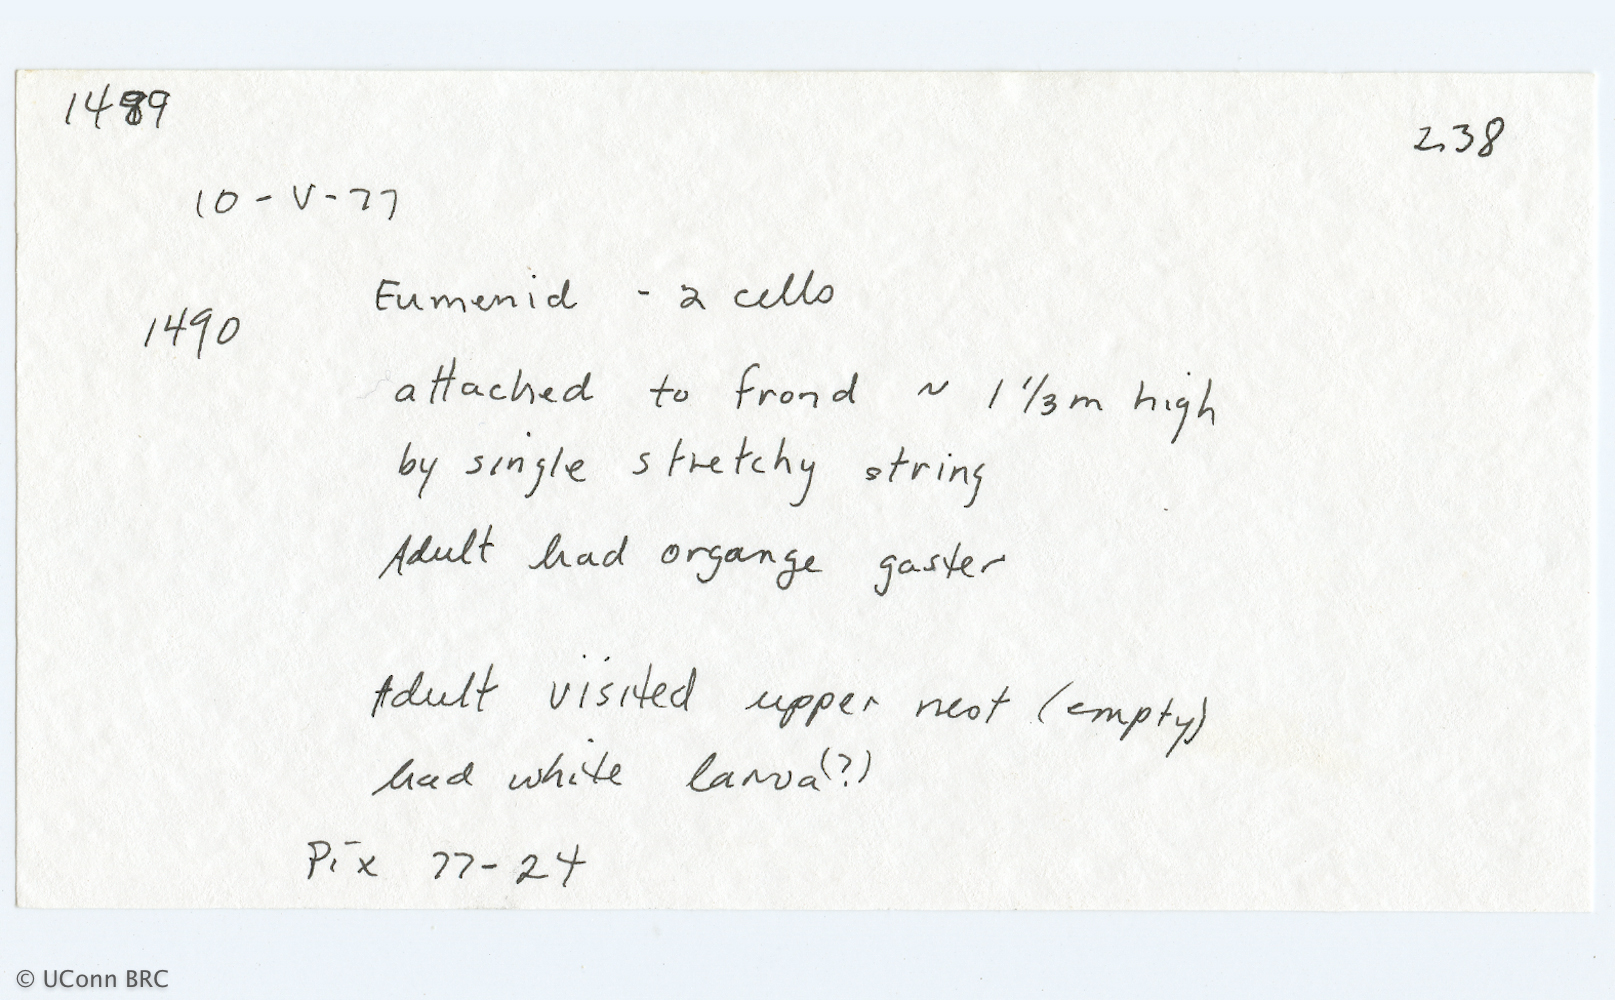 1489
238
10-V-77
Eumenid - 2 cells
1490
attached to frond ~ 1 1/3 m high
by single stretchy string
Adult had organge gaster
Adult visited upper nest (empty)
had white larva(?)
Pix 77-24
© UConn BRC